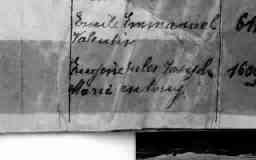 Emile Emmanuel 61
Valentin
Eugène Jules Joseph 160
Marie antony